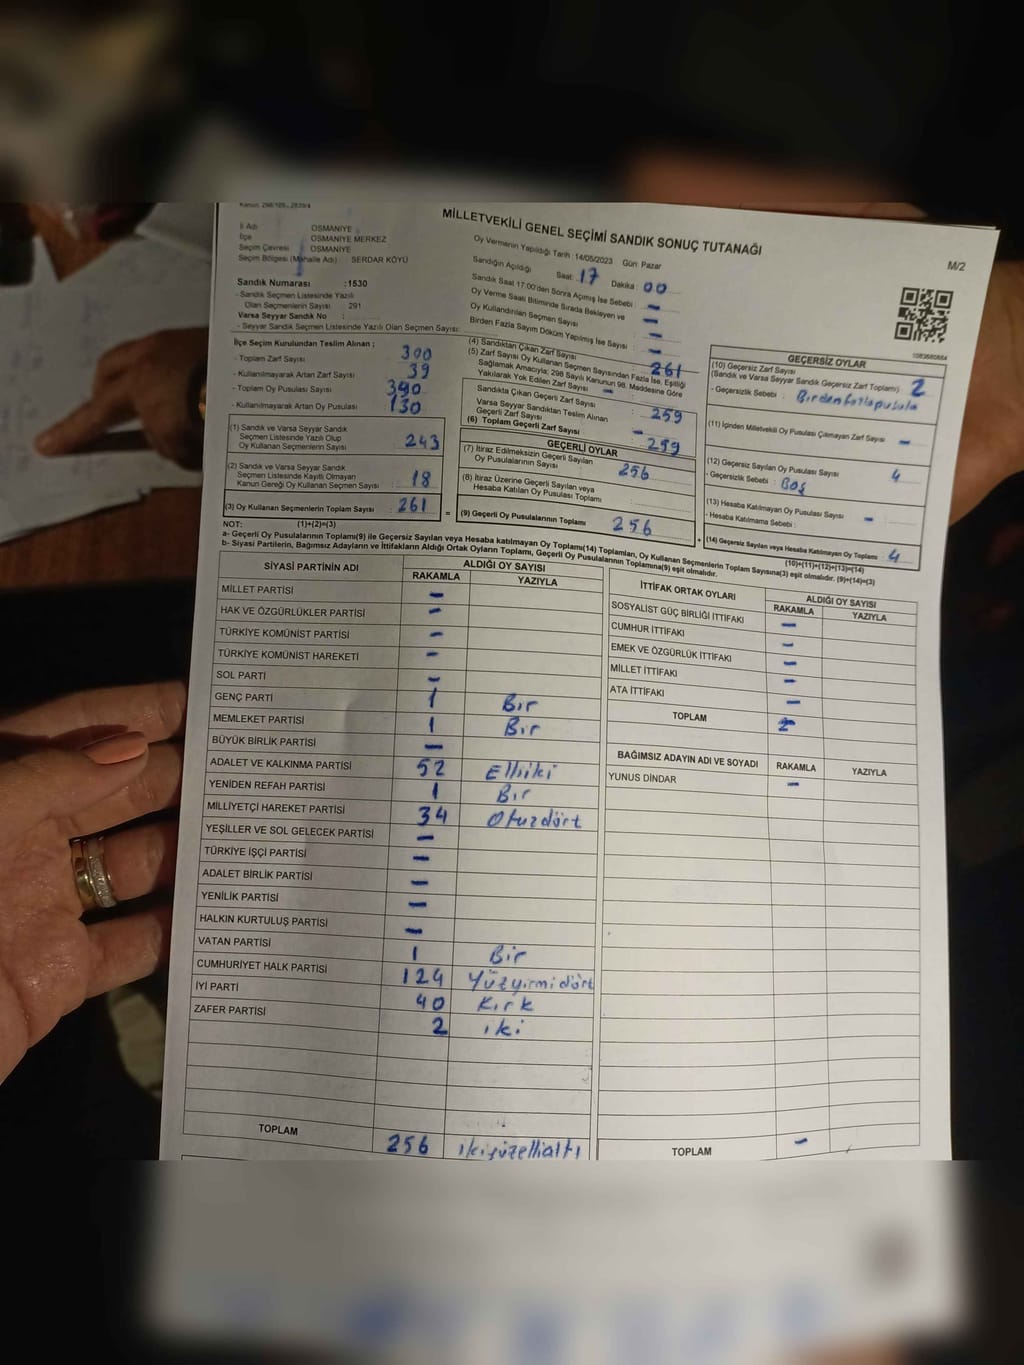 MİLLETVEKİLİ GENEL SEÇİMİ SANDIK SONUÇ TUTANAĞI
M/2
İl Adı OSMANİYE
İlçe OSMANİYE MERKEZ
Seçim Çevresi OSMANİYE
Seçim Bölgesi (Mahalle Adı) : SERDAR KÖYÜ
Sandık Numarası :1530
- Sandık Seçmen Listesinde Yazılı
Olan Seçmenlerin Sayısı : 291
Varsa Seyyar Sandık No :
- Seyyar Sandık Seçmen Listesinde Yazılı Olan Seçmen Sayısı:
Oy Vermenin Yapıldığı Tarih : 14/05/2023 Gün: Pazar
Sandığın Açıldığı Saat: 17 Dakika : 00
Sandık Saat 17:00'den Sonra Açılmış İse Sebebi : -
Oy Verme Saati Bitiminde Sırada Bekleyen ve
Oy Kullandırılan Seçmen Sayısı : -
Birden Fazla Sayım Döküm Yapılmış İse Sayısı : -
1083680884
İlçe Seçim Kurulundan Teslim Alınan ;
- Toplam Zarf Sayısı : 300
- Kullanılmayarak Artan Zarf Sayısı : 39
- Toplam Oy Pusulası Sayısı : 390
- Kullanılmayarak Artan Oy Pusulası : 130
(1) Sandık ve Varsa Seyyar Sandık
Seçmen Listesinde Yazılı Olup
Oy Kullanan Seçmenlerin Sayısı : 243
(2) Sandık ve Varsa Seyyar Sandık
Seçmen Listesinde Kayıtlı Olmayan
Kanun Gereği Oy Kullanan Seçmen Sayısı : 18
(3) Oy Kullanan Seçmenlerin Toplam Sayısı : 261
(4) Sandıktan Çıkan Zarf Sayısı : 261
(5) Zarf Sayısı Oy Kullanan Seçmen Sayısından Fazla İse, Eşitliği
Sağlamak Amacıyla; 298 Sayılı Kanunun 98. Maddesine Göre
Yakılarak Yok Edilen Zarf Sayısı : -
Sandıkta Çıkan Geçerli Zarf Sayısı : 259
Varsa Seyyar Sandıktan Teslim Alınan
Geçerli Zarf Sayısı : -
(6) Toplam Geçerli Zarf Sayısı : 259
GEÇERLİ OYLAR
(7) İtiraz Edilmeksizin Geçerli Sayılan
Oy Pusulalarının Sayısı : 256
(8) İtiraz Üzerine Geçerli Sayılan veya
Hesaba Katılan Oy Pusulası Toplamı :
= (9) Geçerli Oy Pusulalarının Toplamı 256
GEÇERSİZ OYLAR
(10) Geçersiz Zarf Sayısı
(Sandık ve Varsa Seyyar Sandık Geçersiz Zarf Toplamı) : 2
- Geçersizlik Sebebi : Birdenfazlapusula
(11) İçinden Milletvekili Oy Pusulası Çıkmayan Zarf Sayısı : -
(12) Geçersiz Sayılan Oy Pusulası Sayısı : 4
- Geçersizlik Sebebi : Boş
(13) Hesaba Katılmayan Oy Pusulası Sayısı : -
- Hesaba Katılmama Sebebi :
+ (14) Geçersiz Sayılan veya Hesaba Katılmayan Oy Toplamı : 4
NOT: (1)+(2)=(3)
(10)+(11)+(12)+(13)=(14)
a- Geçerli Oy Pusulalarının Toplamı(9) ile Geçersiz Sayılan veya Hesaba katılmayan Oy Toplamı(14) Toplamları, Oy Kullanan Seçmenlerin Toplam Sayısına(3) eşit olmalıdır. (9)+(14)=(3)
b- Siyasi Partilerin, Bağımsız Adayların ve İttifakların Aldığı Ortak Oyların Toplamı, Geçerli Oy Pusulalarının Toplamına(9) eşit olmalıdır.
SİYASİ PARTİNİN ADI ALDIĞI OY SAYISI
RAKAMLA YAZIYLA
MİLLET PARTİSİ -
HAK VE ÖZGÜRLÜKLER PARTİSİ -
TÜRKİYE KOMÜNİST PARTİSİ -
TÜRKİYE KOMÜNİST HAREKETİ -
SOL PARTİ -
GENÇ PARTİ 1 Bir
MEMLEKET PARTİSİ 1 Bir
BÜYÜK BİRLİK PARTİSİ -
ADALET VE KALKINMA PARTİSİ 52 Elliiki
YENİDEN REFAH PARTİSİ 1 Bir
MİLLİYETÇİ HAREKET PARTİSİ 34 Otuzdört
YEŞİLLER VE SOL GELECEK PARTİSİ -
TÜRKİYE İŞÇİ PARTİSİ -
ADALET BİRLİK PARTİSİ -
YENİLİK PARTİSİ -
HALKIN KURTULUŞ PARTİSİ -
VATAN PARTİSİ 1 Bir
CUMHURİYET HALK PARTİSİ 124 Yüzyirmidört
İYİ PARTİ 40 Kırk
ZAFER PARTİSİ 2 iki
TOPLAM 256 ikiyüzellialtı
İTTİFAK ORTAK OYLARI ALDIĞI OY SAYISI
RAKAMLA YAZIYLA
SOSYALİST GÜÇ BİRLİĞİ İTTİFAKI -
CUMHUR İTTİFAKI -
EMEK VE ÖZGÜRLÜK İTTİFAKI -
MİLLET İTTİFAKI -
ATA İTTİFAKI -
TOPLAM
BAĞIMSIZ ADAYIN ADI VE SOYADI RAKAMLA YAZIYLA
YUNUS DİNDAR -
TOPLAM -